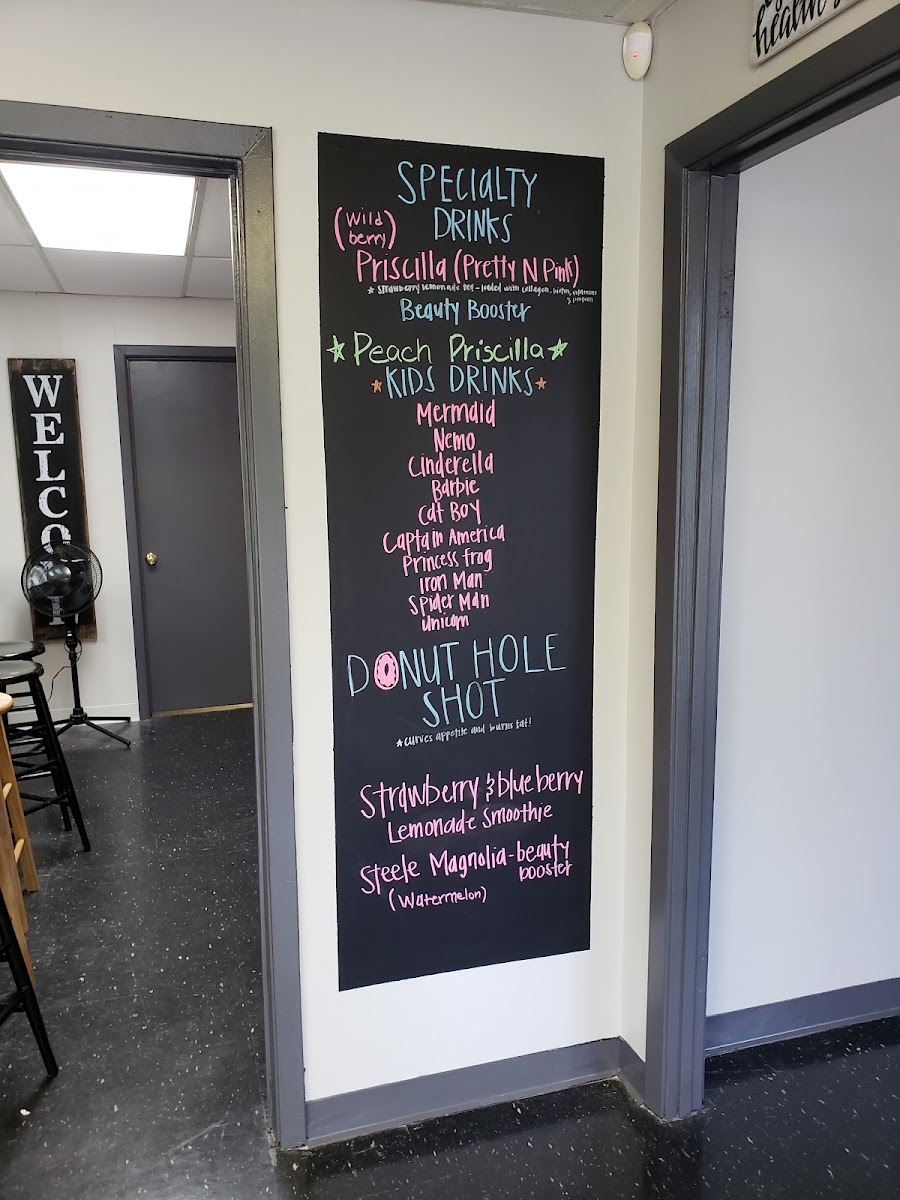 health
SPECIALTY
DRINKS
(Wild
berry)
Priscilla (Pretty N Pink)
★ strawberry lemonade tea - loaded with collagen, biotin, vitamins
& protein
Beauty Booster
☆ Peach Priscilla ☆
☆ KIDS DRINKS ☆
Mermaid
Nemo
Cinderella
Barbie
Cat Boy
Captain America
Princess frog
Iron Man
Spider Man
unicorn
DONUT HOLE
SHOT
★ curves appetite and burns fat!
Strawberry & blueberry
Lemonade Smoothie
Steele Magnolia - beauty
booster
(Watermelon)
WELCO